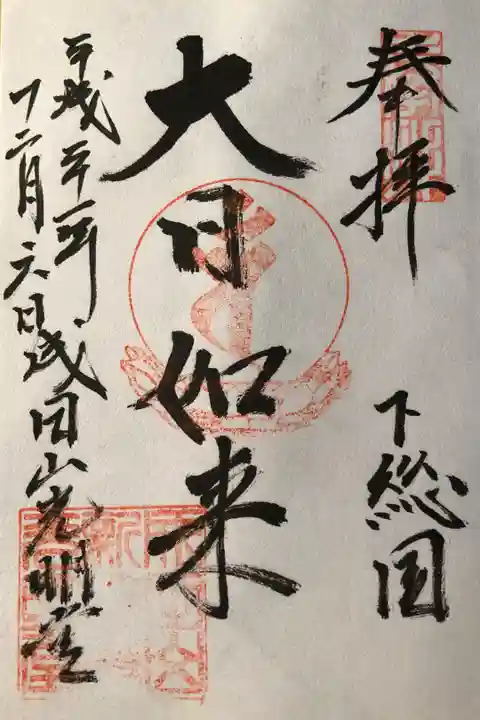 奉拝
下総国
大日如来
平成二十一年
十二月六日 成田山光明堂